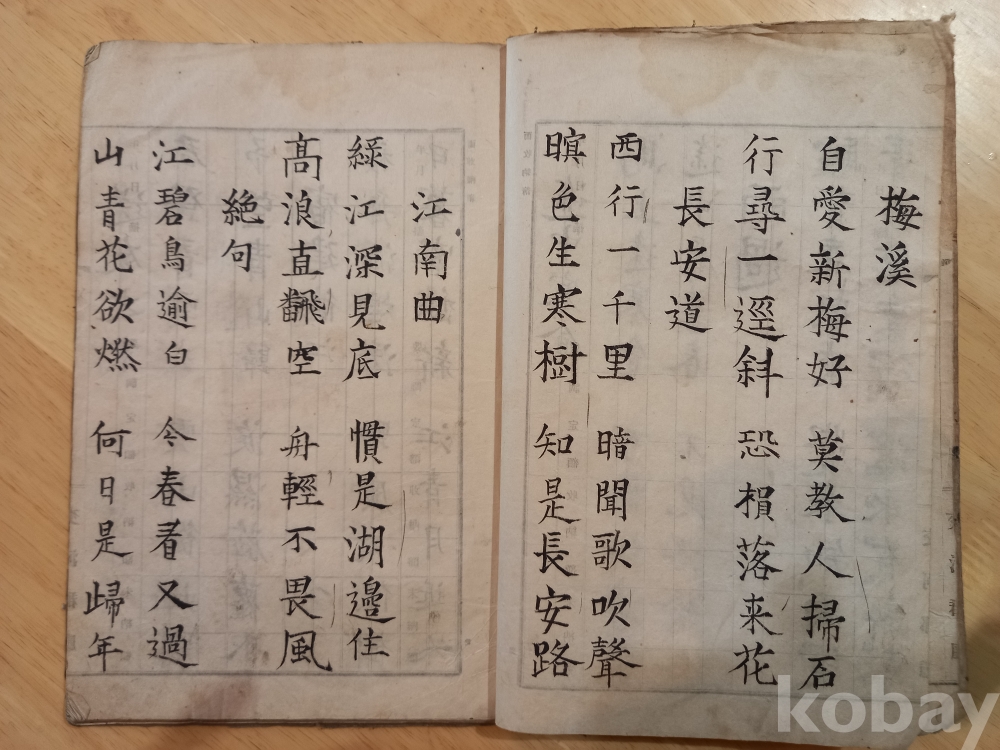 梅溪
自愛新梅好 莫教人掃石
行尋一逕斜 恐損落来花
長安道
西行一千里 暗聞歌吹聲
暝色生寒樹 知是長安路
江南曲
綠江深見底 慣是湖邉住
高浪直飜空 舟輕不畏風
絶句
江碧鳥逾白 今春看又過
山青花欲燃 何日是歸年
kobay